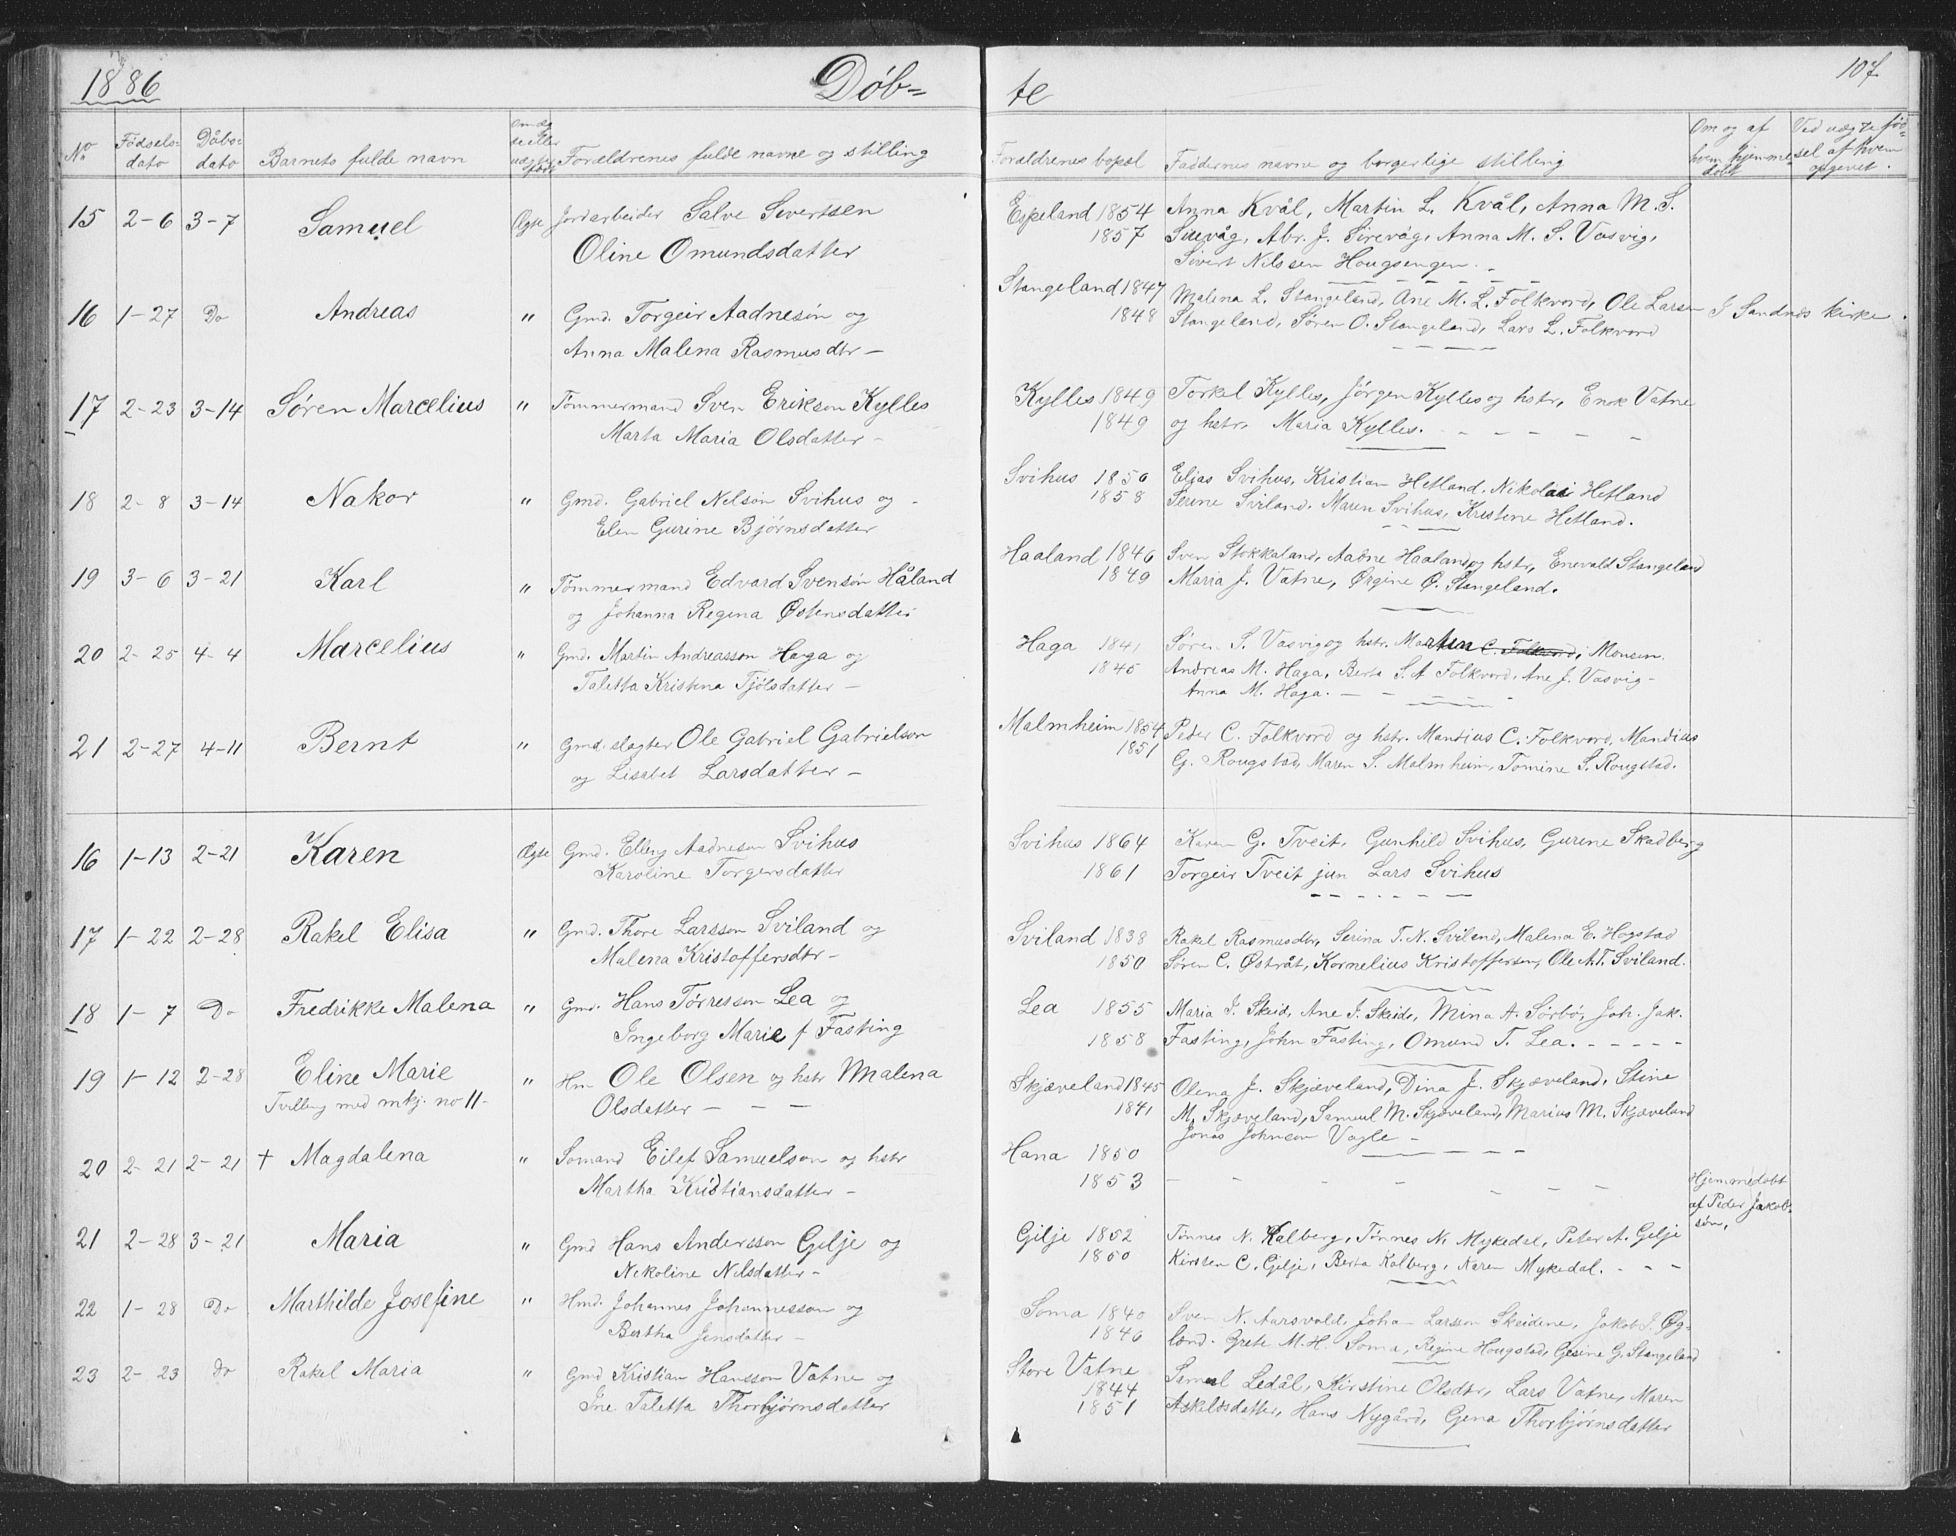 1886 Døb= te 107
No Fødsels= dato Dåbs= dato Barnets fulde navn Forældrenes fulde navne og stilling Forældrenes bopæl Faddernes navne og borgerlige stilling Om og af hvem hjemme= døbt Ved uægte fød= sel af hvem opgevet.
15 2-6 3-7 Samuel Ægte Jordarbeider Salve Sivertsen Espeland 1854 Anna Kvål, Martin L. Kvål, Anna M. S.
Oline Omundsdatter 1857 Sirevåg, Abr. J. Sirevåg, Anna M. S. Vasvig,
Sivert Nilssen Hougsengen.
16 1-27 Do Andreas " Gmd. Torgeir Aadnesøn og Stangeland 1847 Malena L. Stangeland, Ane M. L. Folkvord, Ole Larsen I Sandnes kirke.
Anna Malena Rasmusdtr - 1848 Stangeland, Søren O. Stangeland, Lars L. Folkvord
17 2-23 3-14 Søren Marcelius " Tømmermand Sven Erikson Kylles Kylles 1849 Torkel Kylles, Jørgen Kylles og hstr, Enok Vatne
Marta Maria Olsdatter - 1849 og hstr, Maria Kylles.
18 2-8 3-14 Nakor " Gmd. Gabriel Nelson Svihus og - Svihus 1856 Elias Svihus, Kristian Hetland, Nikolai Hetland
Elen Gurine Bjørnsdatter 1858 Serine Sviland, Maren Svihus, Kristine Hetland.
19 3-6 3-21 Karl " Tømmermand Edvard Svensøn Håland Haaland 1846 Sven Stokkaland, Aadne Haaland og hstr, Enevald Stangeland
og Johanna Regina Østensdatter 1849 Maria J. Vatne, Ørgine Ø. Stangeland.
20 2-25 4-4 Marcelius " Gmd. Martin Andreasson Haga og Haga 1841 Søren S. Vasvig og hstr. Marthin C. Folkvord, Monsen.
Taletta Kristina Tjølsdatter - 1845 Andreas M. Haga, Berta S. A Folkvord, Ane J. Vasvig -
Anna M. Haga. -
21 2-27 4-11 Bernt " Gmd. slagter Ole Gabriel Gabrielson Malmheim 1854 Peder C. Folkvord og hstr. Mandius C. Folkvord, Mandius
og Lisabet Larsdatter - 1851 G. Rougstad, Maren S. Malmheim, Tomine S. Rougstad.
16 1-13 2-21 Karen Ægte Gmd. Elling Aadneson Svihus Svihus 1864 Karen G. Tveit, Gunhild Svihus, Gurine Skadberg
Karoline Torgersdatter 1861 Torgeir Tveit jun Lars Svihus
17 1-22 2-28 Rakel Elisa " Gmd. Thore Larsson Sviland og Sviland 1838 Rakel Rasmusdtr, Serina T. N. Sviland, Malena E. Hogstad
Malena Kristoffersdtr - 1850 Søren C. Østråt, Kornelius Kristoffersen, Ole A. T. Sviland.
18 1-7 Do Fredrikke Malena " Gmd. Hans Tørresson Lea og Lea 1855 Maria J. Skeid, Ane J. Skeid, Mina A. Sørbø, Joh. Jak.
Ingeborg Marie f Fasting 1858 Fasting, John Fasting, Omund T. Lea.
19 1-12 2-28 Eline Marie " Hm Ole Olsen og hstr Malena Skjæveland 1845 Olena J. Skjæveland, Dina J. Skjæveland, Stine
Tvilling med mkj. no 11- Olsdatter - 1841 M. Skjæveland, Samuel M. Skjæveland, Marius M. Skjæveland
Jonas Johnson Vagle -
20 2-21 2-21 + Magdalena " Sømand Eilef Samuelson og hstr Hana 1850
Martha Kristiansdatter - 1853 Hjemmedøbt af Peder Jakob= søn,
21 2-28 3-21 Maria " Gmd Hans Andersson Gilje og Gilje 1852 Tønnes N. Kalberg, Tønnes N. Mykedal, Peter A. Gilje
Nikoline Nilsdatter - 1850 Kirsten C. Gilje, Berta Kalberg, Karen Mykedal.
22 1-28 Do Marthilde Josefine " Hmd. Johannes Johannesson og Soma 1840 Sven N. Aarsvold, Johan Larsson Skeidene, Jakob J. Øg=
Bertha Jensdatter - 1846 land. Grete M. H. Soma, Regine Hougstad, Gesine G. Stangeland
23 2-23 do Rakel Maria " Gmd Kristian Hansson Vatne og Store Vatne 1844 Samuel Ledål, Kirstine Olsdtr, Lars Vatne, Maren
Ine Taletta Thorbjørnsdatter 1851 Askelsdatter, Hans Nygård, Gena Thorbjørnsdatter